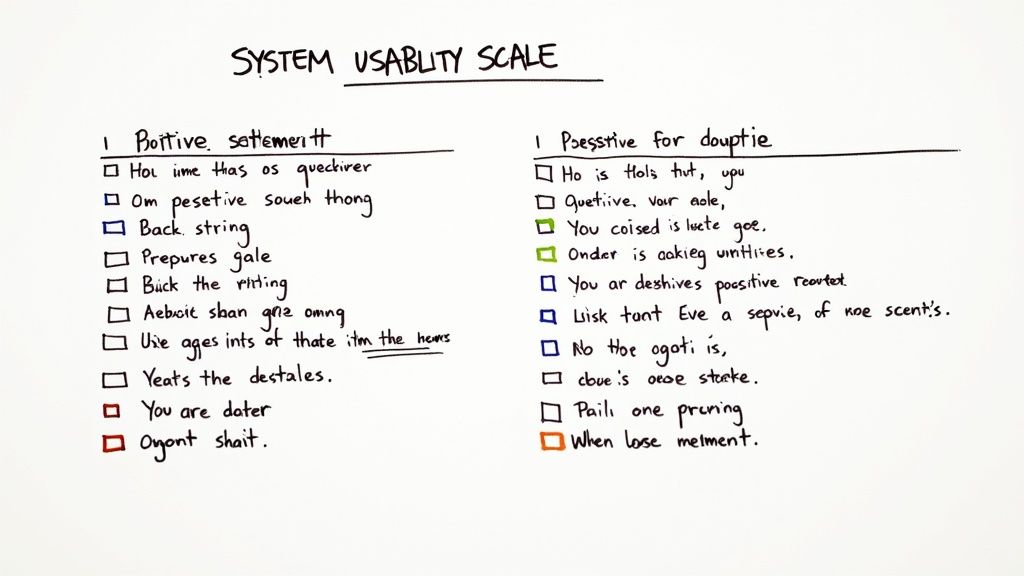 SYSTEM USABLITY SCALE
I Poitive settement
How ime thas os queckirer
Om pesetive soueh thong
Back. string
Prepures gale
Bück the ritting
Aebwoic sban gria omnng
Uve ages ints of thate itm the hews
Yeats the destales.
You are dater
Oyont shait.
I Paegstive for douptie
Ho is thols thut, upu
Guetiive. vour aole,
You coised is luete goe.
Onder is oakieg winthives.
You ar deshives poesitive
Lisk tant Eve a sepvie, of noe scent's.
No thoe ogati is,
cboe's oeoe steeke.
Paili one prcning
When lose melment.